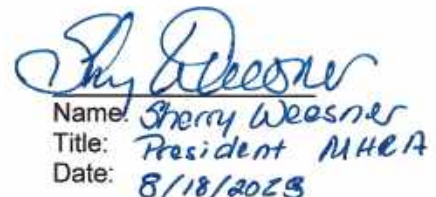 Sherry Weesner
Name: Sherry Weesner
Title: President MHRA
Date: 8/18/2023